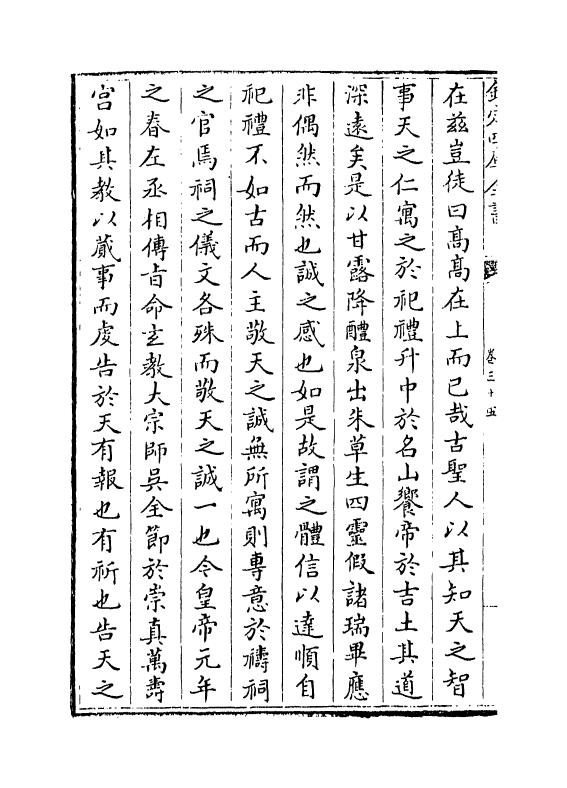 欽定四庫全書
卷三十五
在兹豈徒曰髙髙在上而已哉古聖人以其知天之智
事天之仁寓之於祀禮升中於名山饗帝於吉土其道
深逺矣是以甘露降醴泉出朱草生四靈假諸瑞畢應
非偶然而然也誠之感也如是故謂之體信以達順自
祀禮不如古而人主敬天之誠無所寓則專意於禱祠
之官焉祠之儀文各殊而敬天之誠一也今皇帝元年
之春左丞相傳旨命𤣥教大宗師吳全節於崇真萬夀
宫如其教以蕆事而虔告於天有報也有祈也告天之